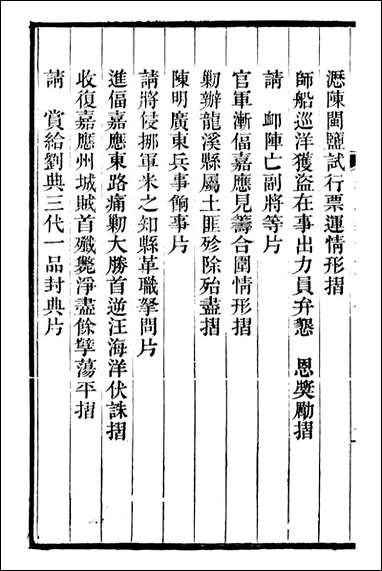 瀝陳閩鹽試行票運情形摺
師船巡洋獲盜在事出力員弁懇　恩奬勵摺
請　卹陣亡副將等片
官軍漸偪嘉應見籌合圍情形摺
勦辦龍溪縣屬土匪殄除殆盡摺
陳明廣東兵事餉事片
請將侵挪軍米之知縣革職拏問片
進偪嘉應東路痛勦大勝首逆汪海洋伏誅摺
收復嘉應州城賊首殲斃淨盡餘孽蕩平摺
請　賞給劉典三代一品封典片